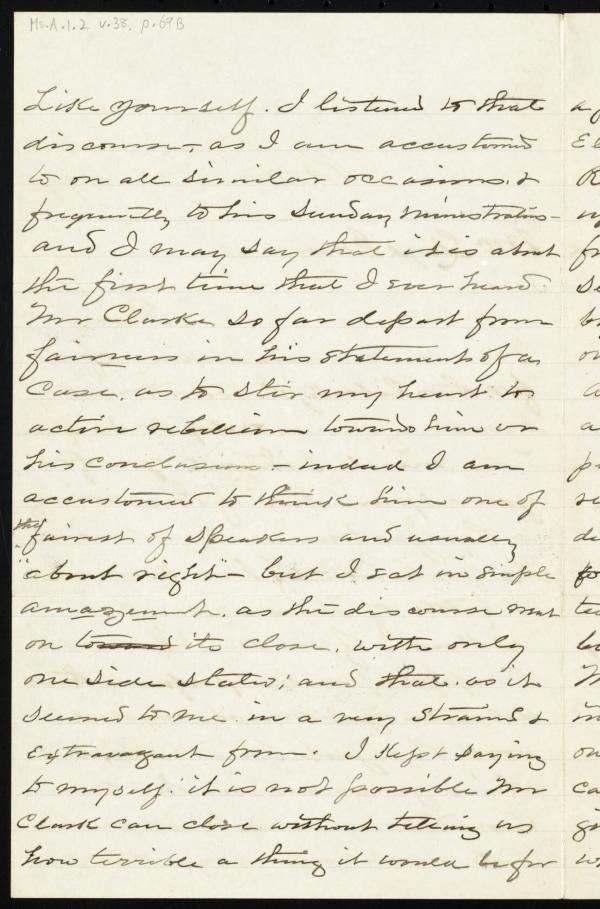 Ms. A. 1. 2 v. 38, p. 69B
Like yourself. I listened to that
discourse, as I am accustomed
to on all similar occasions, &
frequently to his Sunday ministrations -
and I may say that it is about
the first time that I ever heard
Mr Clarke so far depart from
fairness in his statement of a
case, as to stir my heart to
active rebellion towards him or
his conclusions - indeed I am
accustomed to think him one of
the fairest of speakers and usually
"about right" - but I sat in simple
amazement, as the discourse went
on toward its close, with only
one side stated; and that, as it
seemed to me, in a very strained &
extravagant form. I kept saying
to myself: it is not possible Mr
Clark can close without telling us
how terrible a thing it would be for